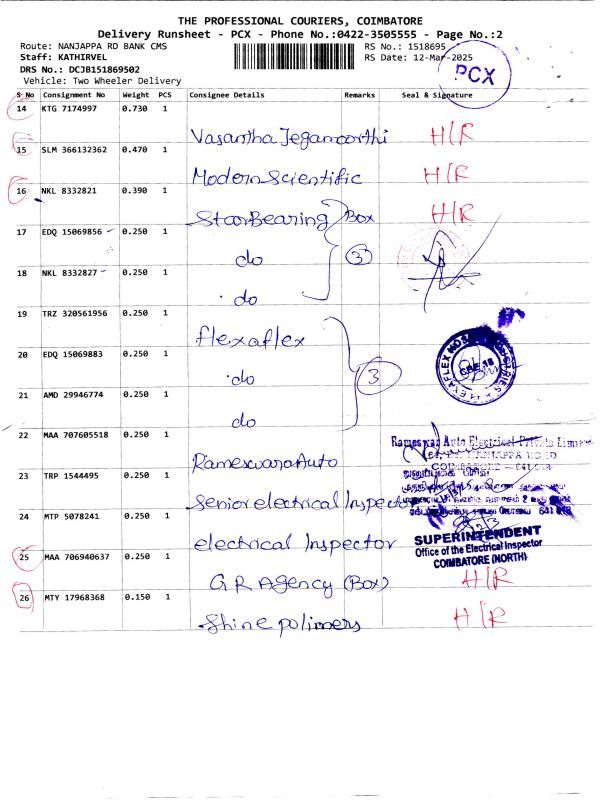 THE PROFESSIONAL COURIERS, COIMBATORE
Delivery Runsheet - PCX - Phone No.:0422-3505555 - Page No.:2
Route: NANJAPPA RD BANK CMS
RS No.: 1518695
Staff: KATHIRVEL
RS Date: 12-Mar-2025
DRS No.: DCJB151869502
PCX
Vehicle: Two Wheeler Delivery
S No Consignment No Weight PCS Consignee Details Remarks Seal & Signature
14 KTG 7174997 0.730 1
Vasantha Jegamoorthi H/R
15 SLM 366132362 0.470 1
Modern Scientific H/R
16 NKL 8332821 0.390 1
Star Bearing Box H/R
17 EDQ 15069856 0.250 1
do 3
18 NKL 8332827 0.250 1
do
19 TRZ 320561956 0.250 1
flexaflex
20 EDQ 15069883 0.250 1
do 3
21 AMD 29946774 0.250 1
do
22 MAA 707605518 0.250 1
Rameswar Auto Electrical Private Limited
NANJAPPA ROAD
COIMBATORE - 641 018
Rameswara Auto
23 TRP 1544495 0.250 1
Senior electrical Inspector
641 018
24 MTP 5078241 0.250 1
electrical Inspector
SUPERINTENDENT
Office of the Electrical Inspector
COIMBATORE (NORTH)
25 MAA 706940637 0.250 1
G R Agency (Box) H/R
26 MTY 17968368 0.150 1
Shine polimers H/R